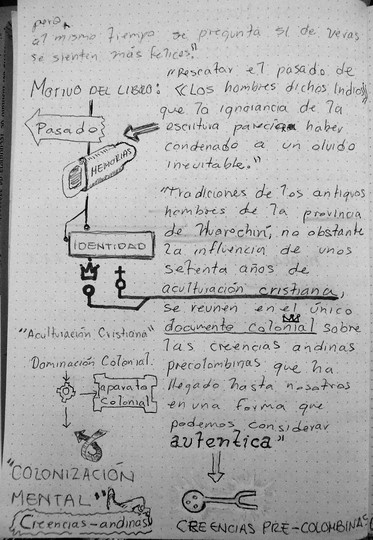 pero,
al mismo tiempo se pregunta si de veras
se sienten más felices."
MOTIVO DEL LIBRO:
Pasado
MEMORIAS
IDENTIDAD
"Rescatar el pasado de
«Los hombres dichos Indios»
que la ignorancia de la
escritura parecía haber
condenado a un olvido
inevitable."
"Tradiciones de los antiguos
hombres de la provincia
de Huarochirí, no obstante
la influencia de unos
setenta años de
aculturación cristiana,
se reunen en el único
documento colonial sobre
las creencias andinas
precolombinas que ha
llegado hasta nosotros
en una forma que
podemos considerar
autentica"
CREENCIAS PRE-COLOMBINAS
"Aculturación Cristiana"
Dominación Colonial.
aparato
colonial
"COLONIZACIÓN
MENTAL"
Creencias-andinas